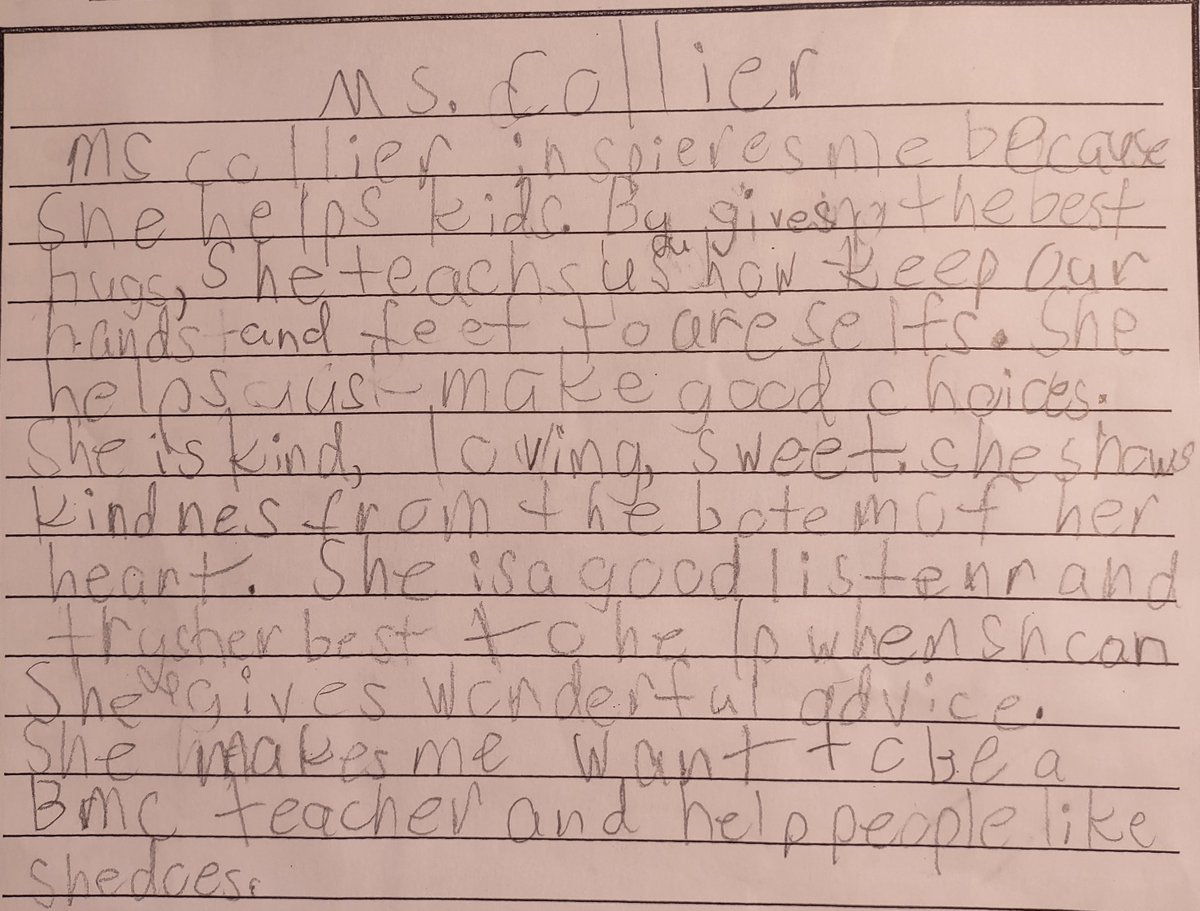 Ms. Collier
MS collier inspieres me because
She helps kids. By gives the best
hugs, She teachs us how keep our
hands and feet to are selfs. She
helps us make good choices.
She is kind, loving, sweet. she shows
kindnes from the botem of her
heart. She is a good listenr and
trys her best to help when sh can
She gives wonderful advice.
She makes me want to be a
Bmc teacher and help people like
she does.